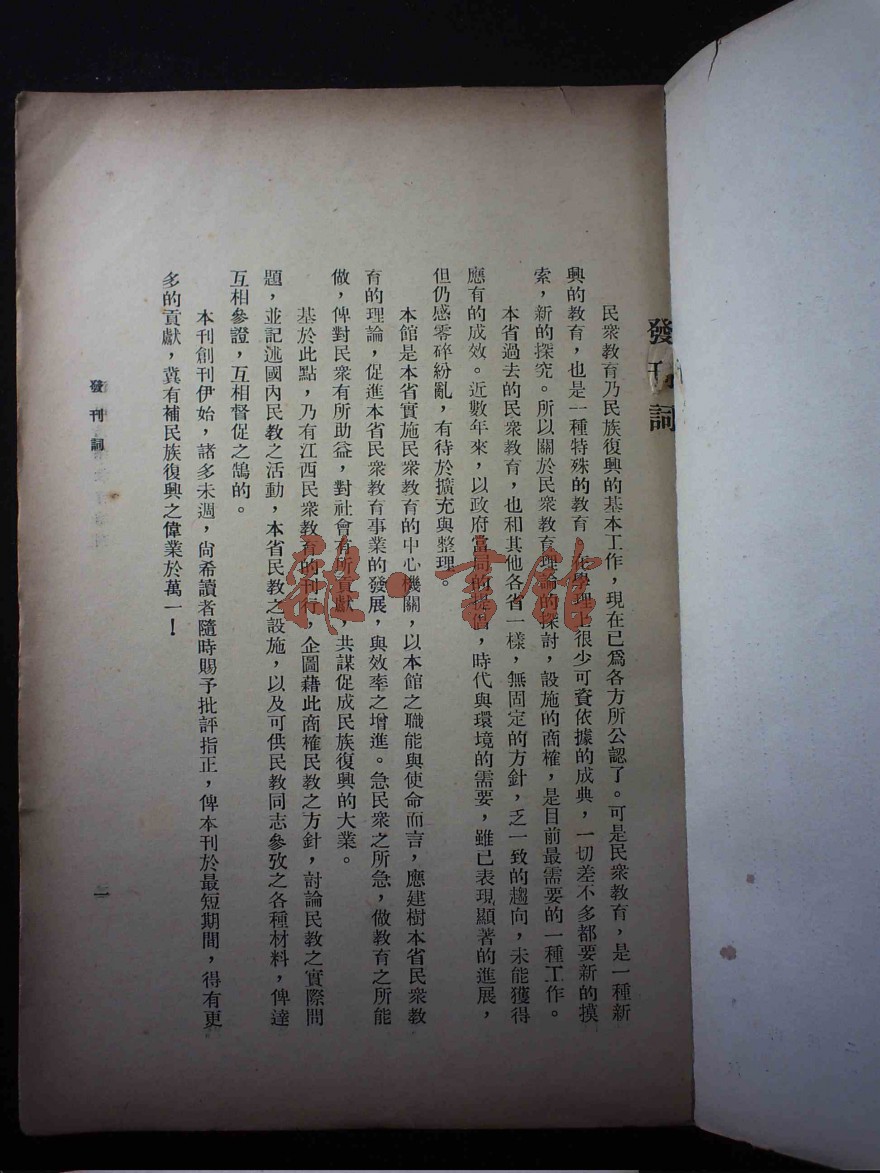 發刊詞
民衆教育乃民族復興的基本工作，現在已爲各方所公認了。可是民衆教育，是一種新
興的教育，也是一種特殊的教育　在學理上很少可資依據的成典，一切差不多都要新的摸
索，新的探究。所以關於民衆教育理論的探討，設施的商榷，是目前最需要的一種工作。
本省過去的民衆教育，也和其他各省一樣，無固定的方針，乏一致的趨向，未能獲得
應有的成效。近數年來，以政府當局的提倡，時代與環境的需要，雖已表現顯著的進展，
但仍感零碎紛亂，有待於擴充與整理。
本館是本省實施民衆教育的中心機關，以本館之職能與使命而言，應建樹本省民衆教
育的理論，促進本省民衆教育事業的發展，與效率之增進。急民衆之所急，做教育之所能
做，俾對民衆有所助益，對社會有所貢獻，共謀促成民族復興的大業。
基於此點，乃有江西民衆教育的刊行，企圖藉此商榷民教之方針，討論民教之實際問
題，並記述國內民教之活動，本省民教之設施，以及可供民教同志參攷之各種材料，俾達
互相參證，互相督促之鵠的。
本刊創刊伊始，諸多未週，尙希讀者隨時賜予批評指正，俾本刊於最短期間，得有更
多的貢獻，冀有補民族復興之偉業於萬一！
發刊詞
一
雜·書館